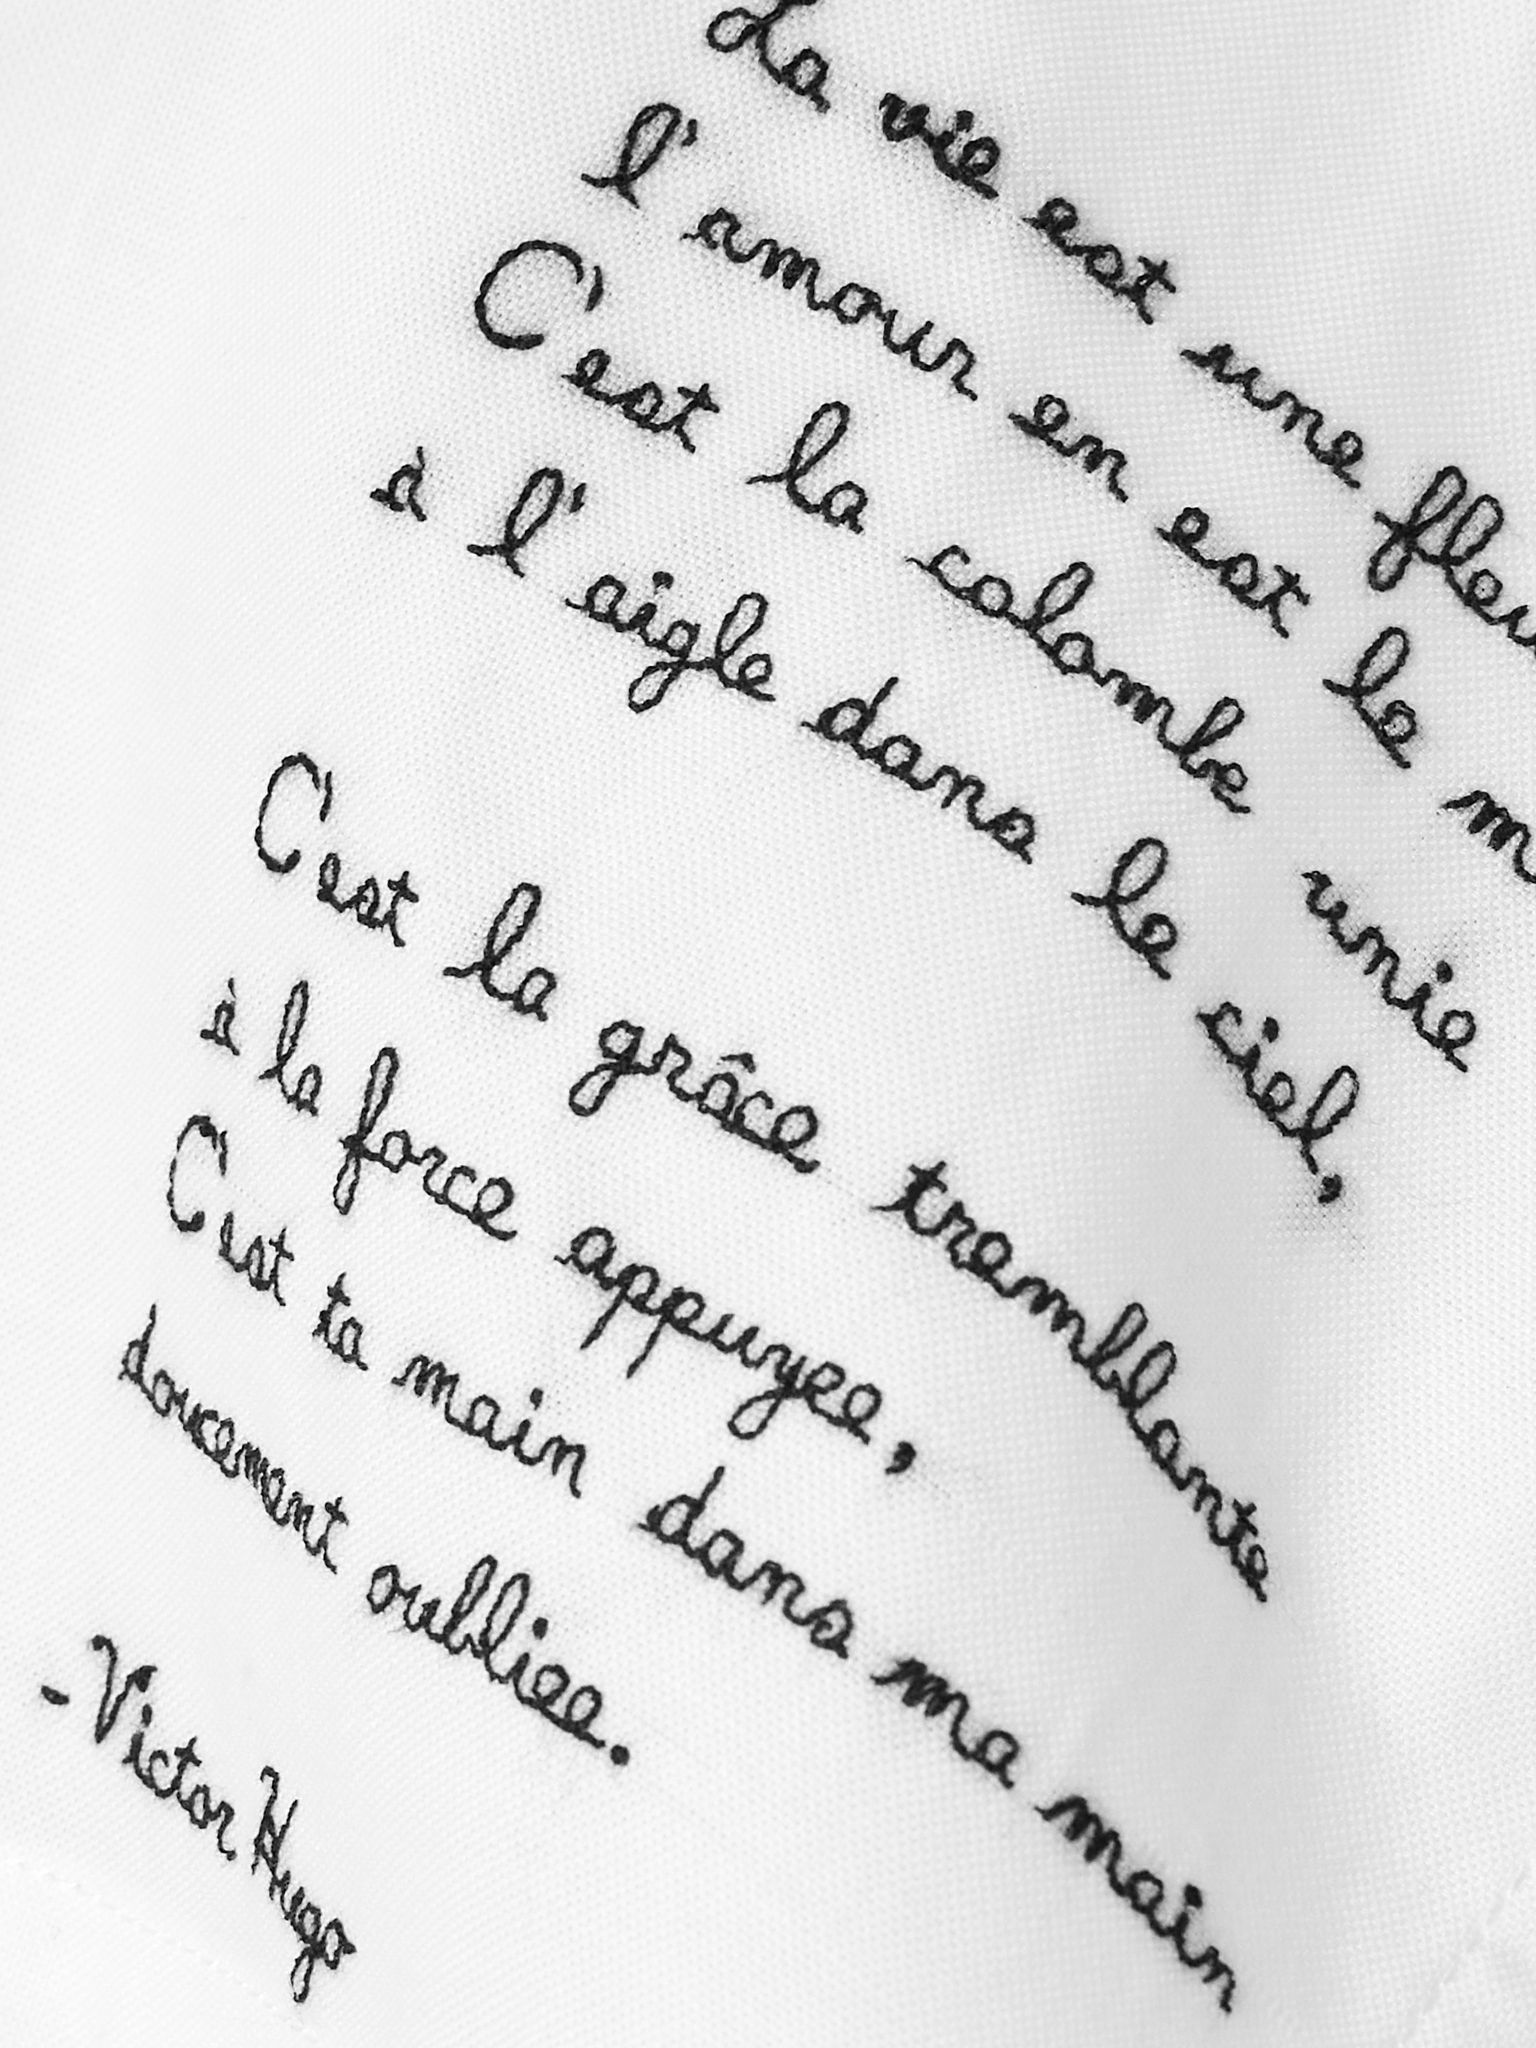 La vie est une
l'amour en est le
C'est la colombe unie
à l'aigle dans le ciel,
C'est la grâce tremblante
à la force appuyee,
C'est ta main dans ma main
doucement oubliee.
-Victor Hugo